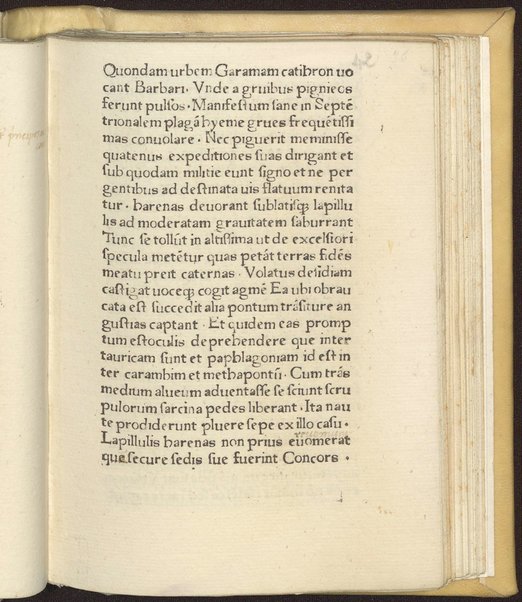 42
Quondam urbem Garamam catibron uo
cant Barbari. Vnde a gruibus pigmeos
ferunt pulsos · Manifestum sane in Septē
trionalem plagā hyeme grues frequētissi
mas conuolare · Nec piguerit meminisse
quatenus expeditiones suas dirigant et
sub quodam militie eunt signo et ne per
gentibus ad destinata uis flatuum renita
tur · harenas deuorant sublatisqȝ lapillu
lis ad moderatam grauitatem saburrant
Tunc se tollūt in altissima ut de excelsiori
specula metētur quas petāt terras fidēs
meatu preit caternas · Volatus desidiam
castigat uoceqȝ cogit agmē Ea ubi obrau
cata est succedit alia pontum trāsiture an
gustias captant · Et quidem eas promp
tum est oculis deprehendere que inter
tauricam sunt et paphlagoniam id est in
ter carambim et methapontū · Cum trās
medium alueum aduentasse se sciunt scru
pulorum sarcina pedes liberant · Ita nau
te prodiderunt pluere sepe ex illo casu ·
Lapillulis harenas non prius euomerat
que secure sedis sue fuerint Concors ·